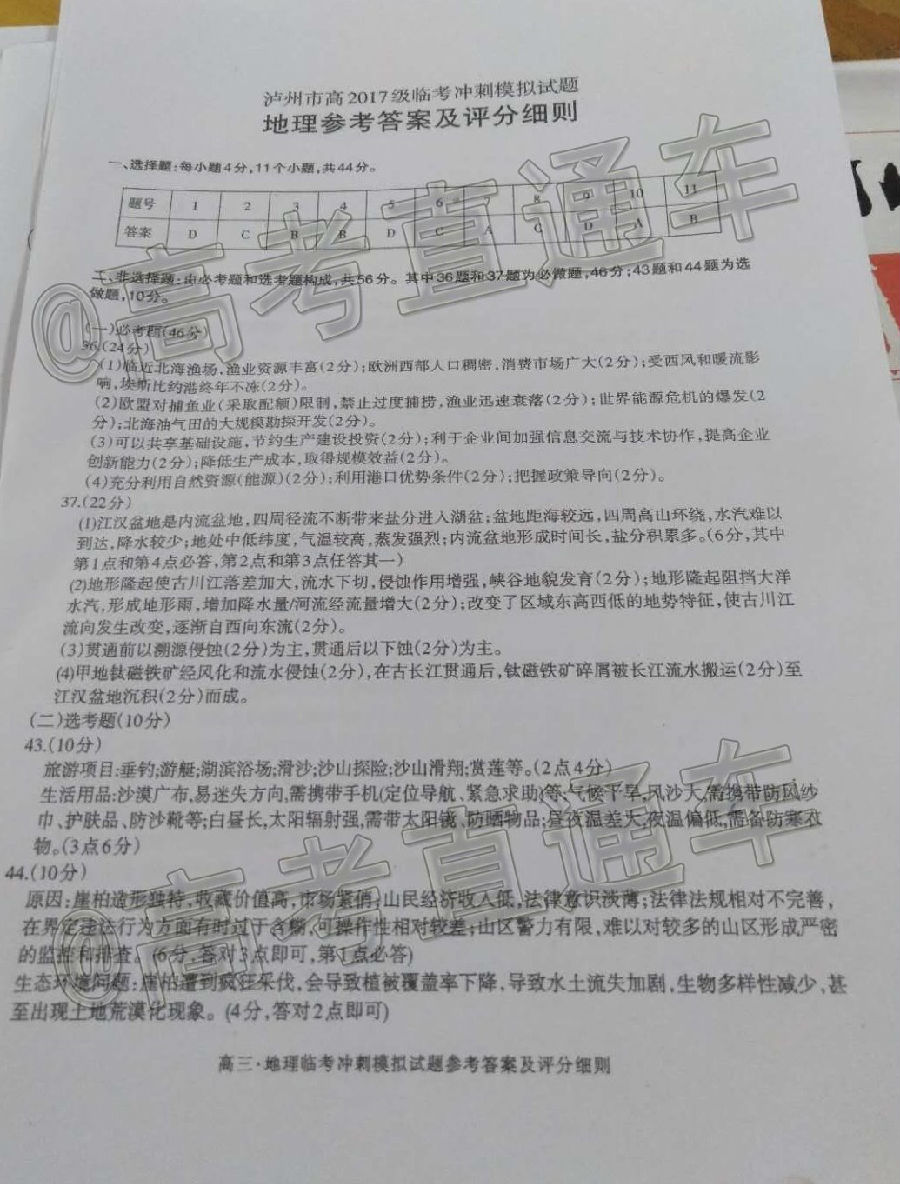 泸州市高2017级临考冲刺模拟试题
地理参考答案及评分细则
一、选择题:每小题4分,11个小题,共44分。
题号 1 2 3 4 5 6 8 9 10 11
答案 D C B B D C A C D A B
二、非选择题:由必考题和选考题构成,共56分。其中36题和37题为必做题,46分;43题和44题为选
做题,10分。
(一)必考题(46分)
36.(24分)
(1)临近北海渔场,渔业资源丰富(2分);欧洲西部人口稠密,消费市场广大(2分);受西风和暖流影
响,埃斯比约港终年不冻(2分)。
(2)欧盟对捕鱼业(采取配额)限制,禁止过度捕捞,渔业迅速衰落(2分);世界能源危机的爆发(2
分);北海油气田的大规模勘探开发(2分)。
(3)可以共享基础设施,节约生产建设投资(2分);利于企业间加强信息交流与技术协作,提高企业
创新能力(2分);降低生产成本,取得规模效益(2分)。
(4)充分利用自然资源(能源)(2分);利用港口优势条件(2分);把握政策导向(2分)。
37.(22分)
(1)江汉盆地是内流盆地,四周径流不断带来盐分进入湖盆;盆地距海较远,四周高山环绕,水汽难以
到达,降水较少;地处中低纬度,气温较高,蒸发强烈;内流盆地形成时间长,盐分积累多。(6分,其中
第1点和第4点必答,第2点和第3点任答其一)
(2)地形隆起使古川江落差加大,流水下切,侵蚀作用增强,峡谷地貌发育(2分);地形隆起阻挡大洋
水汽,形成地形雨,增加降水量/河流径流量增大(2分);改变了区域东高西低的地势特征,使古川江
流向发生改变,逐渐自西向东流(2分)。
(3)贯通前以溯源侵蚀(2分)为主,贯通后以下蚀(2分)为主。
(4)甲地钛磁铁矿经风化和流水侵蚀(2分),在古长江贯通后,钛磁铁矿碎屑被长江流水搬运(2分)至
江汉盆地沉积(2分)而成。
(二)选考题(10分)
43.(10分)
旅游项目:垂钓;游艇;湖滨浴场;滑沙;沙山探险;沙山滑翔;赏莲等。(2点4分)
生活用品:沙漠广布,易迷失方向,需携带手机(定位导航、紧急求助)等;气候干旱,风沙大,需携带防风纱
巾、护肤品、防沙靴等;白昼长,太阳辐射强,需带太阳镜、防晒物品;昼夜温差大,夜温偏低,需备防寒衣
物。(3点6分)
44.(10分)
原因:崖柏造形独特,收藏价值高,市场紧俏;山民经济收入低,法律意识淡薄;法律法规相对不完善,
在界定违法行为方面有时过于含糊,可操作性相对较差;山区警力有限,难以对较多的山区形成严密
的监控和排查。(6分,答对3点即可,第1点必答)
生态环境问题:崖柏遭到疯狂采伐,会导致植被覆盖率下降,导致水土流失加剧,生物多样性减少,甚
至出现土地荒漠化现象。(4分,答对2点即可)
高三·地理临考冲刺模拟试题参考答案及评分细则
@高考直通车
@高考直通车